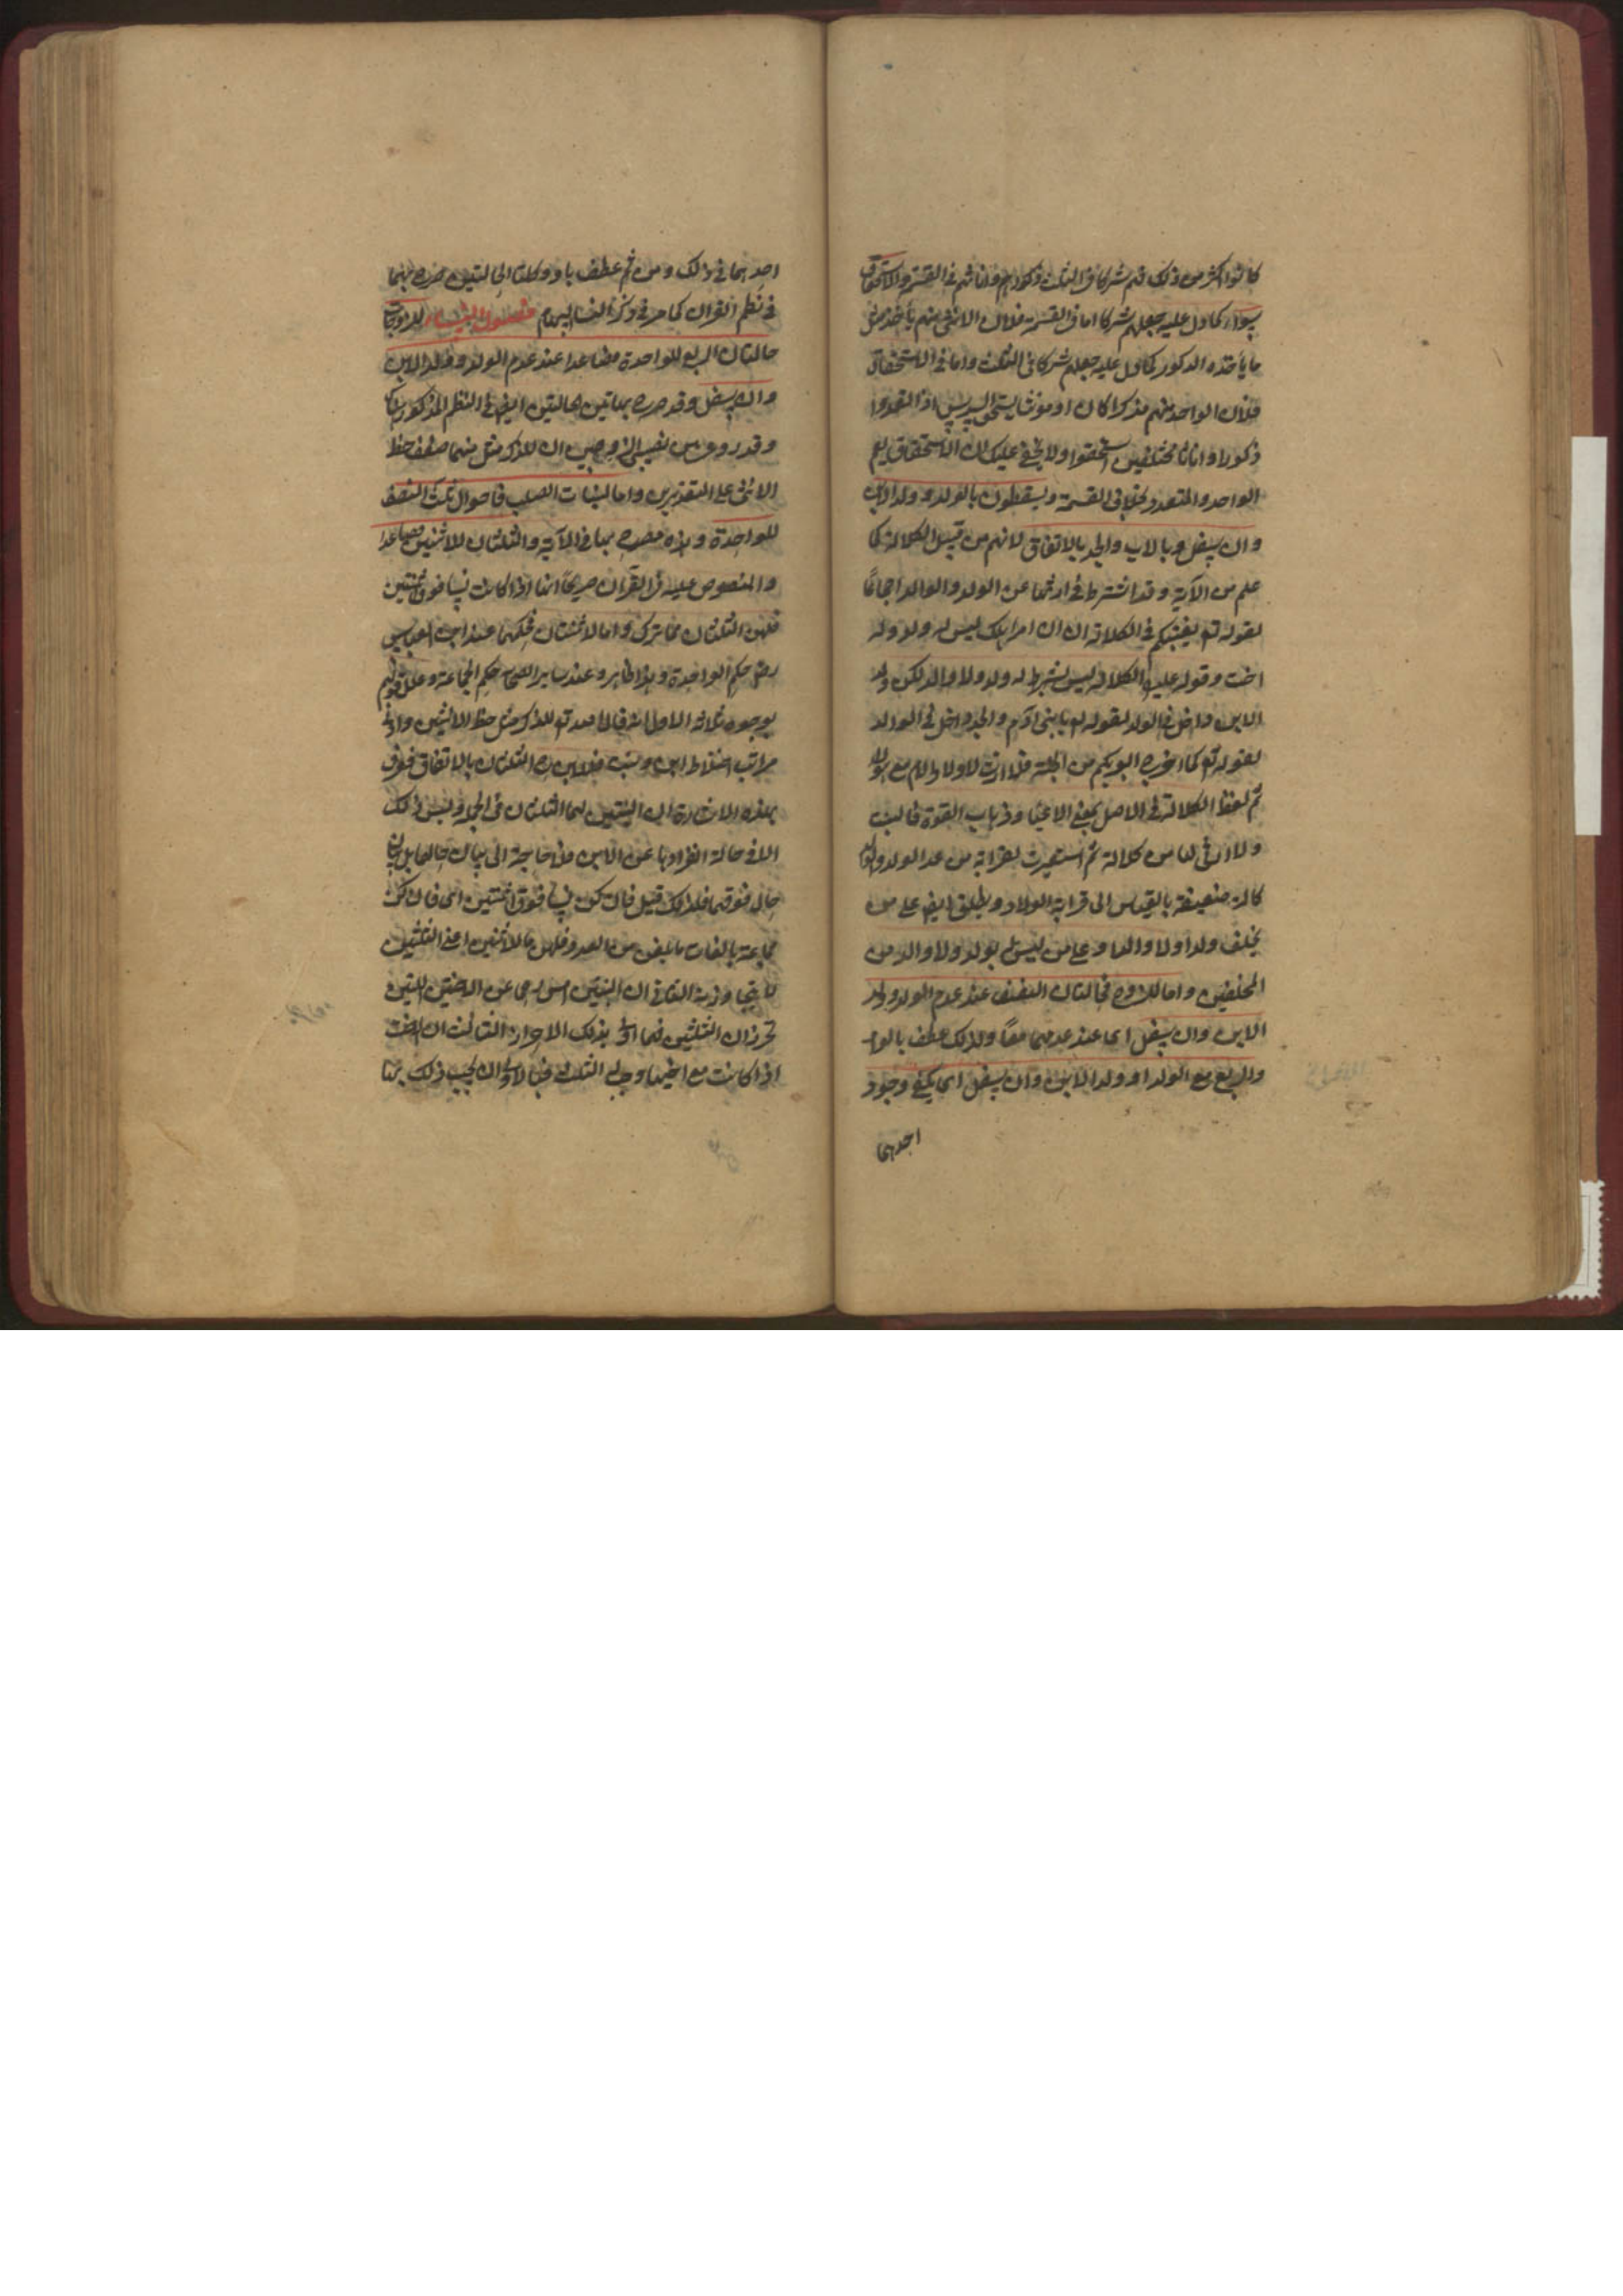 كانوا اكثر من ذلك فهم شركاء فى الثلث ذكورهم واناثهم فى القسمة والاستحقاق
سواء كما دل عليه جعلهم شركا اما فى القسمة فلان الانثى منهم يأخذ مثل
ما يأخذه الذكور كما دل عليه جعلهم شركا فى الثلث واما فى الاستحقاق
فلان الواحد منهم مذكرا كان او مونثا يستحق السدس اذا تعددوا
ذكورا او اناثا مختلفين استحقوا ولا يخفى عليك ان الاستحقاق يعم
الواحد والمتعدد بخلاف القسمة ويسقطون بالولد وولد الابن
وان سفل وبالاب والجد بالاتفاق لانهم من قبيل الكلالة كما
علم من الآية وقد اشترط فى ارثها عدم الولد والوالد اجماعًا
لقوله تع يفتيكم فى الكلالة ان امرا هلك ليس له ولد وله
اخت وقوله عليه الكلالة ليس له ولد ولا والد لكن ولد
الابن داخل فى الولد لقوله تع يا بنى آدم والجد داخل فى الوالد
لقوله تع كما اخرج ابويكم من الجنة فلا ارث لاولاد الام مع هولاء
ثم لفظ الكلالة فى الاصل بمعنى الاعياء وذهاب القوة
ولا ارثى لها من كلالة ثم استعيرت لقرابة من عدا الولد والوالد
كالة ضعيفة بالقياس الى قرابة الولاد ويطلق ايضا على من
يخلف ولدا ولا والدا وعلى من ليس بولد ولا والد من
المخلفين واما للزوج فحالتان النصف عند عدم الولد وولد
الابن وان سفل اى عند عدمهما معًا ولذلك عطف بالواو
والربع مع الولد او ولد الابن وان سفل اى يكفى وجود
احدهما
احدهما فى ذلك ومن ثم عطف باو وكلتا الحالتين صرح بهما
فى نظم القران كما مر فى ذكر النسا
فصول النساء للزوجات
حالتان الربع للواحدة فصاعدا عند عدم الولد وولد الابن
وان سفل وقد صرح بهاتين الحالتين ايضا فى النظم المذكور
وقد روعى نصيب الزوجين ان للذكر مثل منهما ضعف حظ
الانثى على التقديرين واما لبنات الصلب فاحوال ثلث النصف
للواحدة وهذه مصرح بها فى الآية والثلثان للاثنين فصاعدا
والمنصوص عليه فى القرآن صريحًا انها اذا كانت نسا فوق اثنتين
فلهن الثلثان مما ترك واما الاثنتان فحكمهما عند ابن العباس
رض حكم الواحدة وهذا ظاهر وعند ساير الصحابة حكم الجماعة وعلل قولهم
بوجوه ثلاثة الاول انه قال الله تع للذكر مثل حظ الانثيين وادنى
مراتب اختلاط ابن وبنت فللابن ح الثلثان بالاتفاق فعرف
بهذه الاشارة ان البنتين لهما الثلثان فى الجملة وليس ذلك
الا فى حالة انفرادهما عن الابن فلا حاجة الى بيان حالهما بل بيان
حال فوقهما فلذلك قيل فان كن نسا فوق اثنتين اى فان كن
جماعة بالغات ما بلغن من العدد فلهن ما للاثنين اعنى الثلثين
لا يتجاوزنه الثانى ان البنتين امس رحما من الاختين اللتين
تحرزان الثلثين فهما اولى بذلك الاحراز الثالث ان البنت
اذا كانت مع اخيها وجب لها الثلث فبالاولى ان يجب ذلك لها